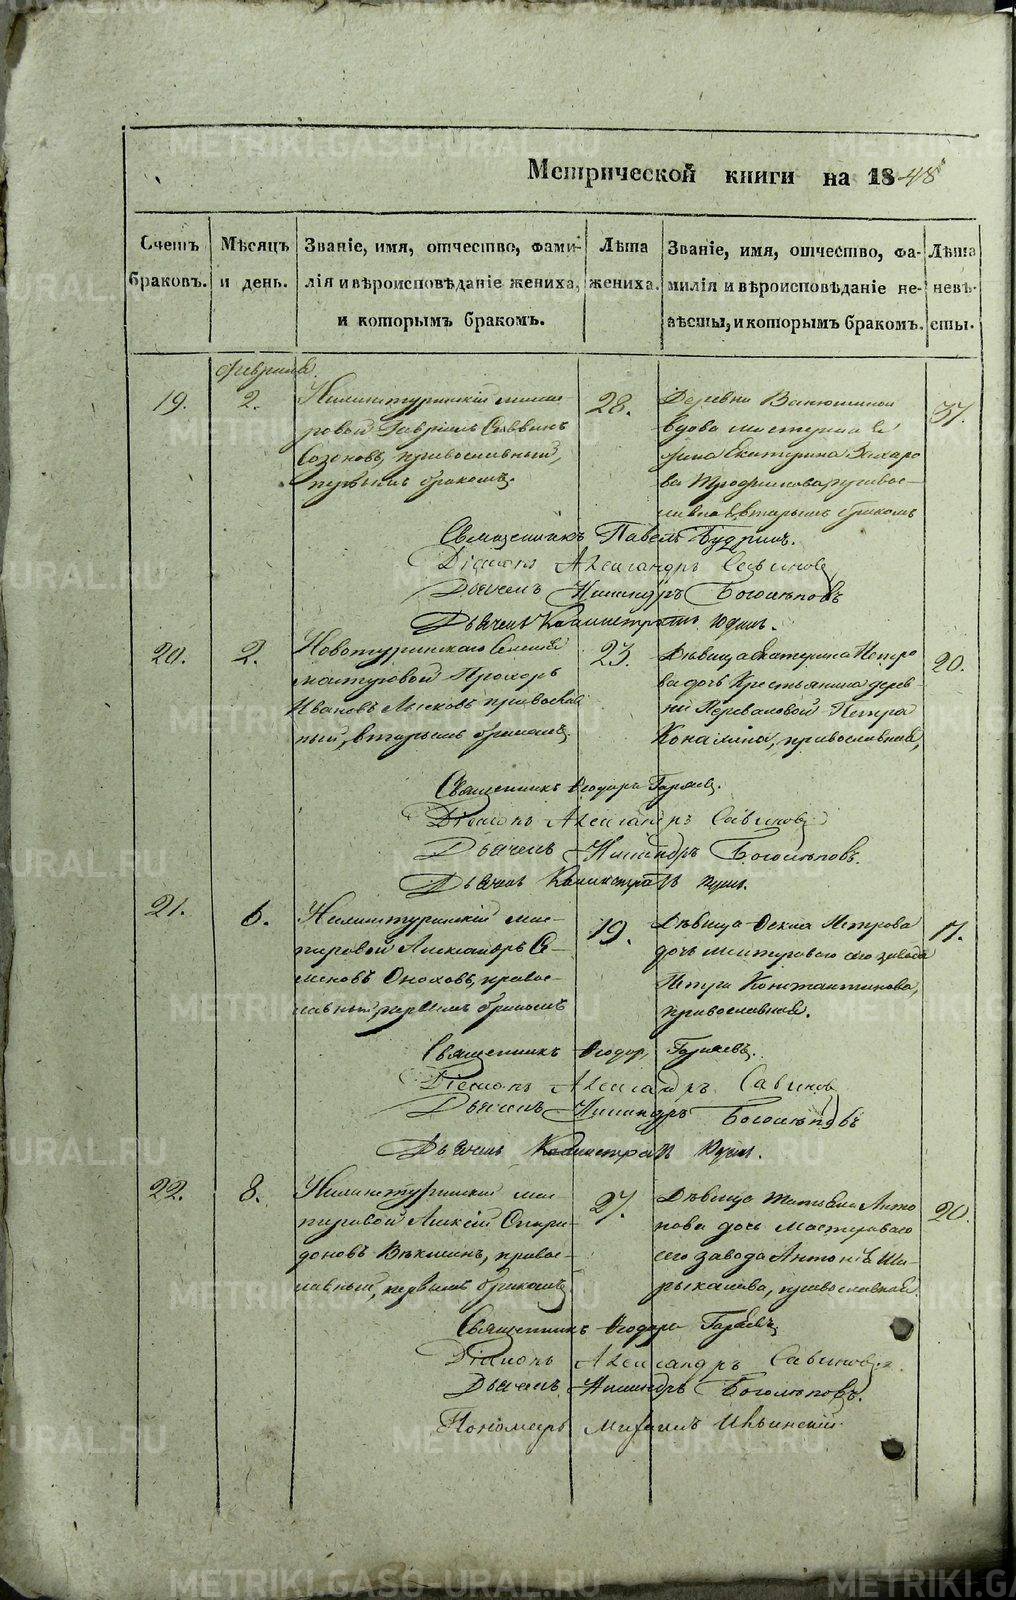 Метрической книги на 1848
Счетъ браковъ.
Мѣсяцъ и день.
Званіе, имя, отчество, фамилія и вѣроисповѣданіе жениха, и которымъ бракомъ.
Лѣта жениха.
Званіе, имя, отчество, фамилія и вѣроисповѣданіе невѣсты, и которымъ бракомъ.
Лѣта невѣсты.
февраля.
19.
2.
Нижнетуринскій масте
ровой Гавріилъ Саввинъ
Созоновъ, православный,
первымъ бракомъ.
28.
Деревни
вдова мастерова
Екатерина Захаро
ва православ-
ная вторымъ бракомъ
37.
Священникъ Павелъ Будринъ.
Діаконъ Александръ Савиновъ
Дьячекъ Никандръ Боголѣповъ
Дьячекъ Калистратъ Юдинъ.
20.
2.
Новотуринскаго Селенія
мастеровой Прохоръ
Ивановъ Лысковъ православ
ный, вторымъ бракомъ
23.
Дѣвица Екатерина Петро
ва дочь Крестьянина дерев
ни Переваловой Петра
православная,
20.
Священникъ Ѳеодоръ Горяевъ.
Діаконъ Александръ Савиновъ
Дьячекъ Никандръ Боголѣповъ.
Дьячекъ Калистратъ Юдинъ.
21.
6.
Нижнетуринскій мас-
теровой Александръ Се-
меновъ Оноховъ, правос-
лавный, первымъ бракомъ
19.
Дѣвица Ѳекла Петрова
дочь мастероваго сего завода
Петра Константинова,
православная.
17.
Священникъ Ѳеодоръ Горяевъ.
Діаконъ Александръ Савиновъ
Дьячекъ Никандръ Боголѣповъ
Дьячекъ Калистратъ Юдинъ.
22.
8.
Нижнетуринскій мас-
теровой Алексій Спири-
доновъ Вѣкшинъ, правос-
лавный, первымъ бракомъ
27.
Дѣвица Татьяна Анто
нова дочь мастероваго
сего завода Антона Ша-
рыкалова, православная.
20.
Священникъ Ѳеодоръ Горяевъ
Діаконъ Александръ Савиновъ.
Дьячекъ Никандръ Боголѣповъ.
Пономарь Михаилъ Ильинскій.
METRIKI.GASO-URAL.RU